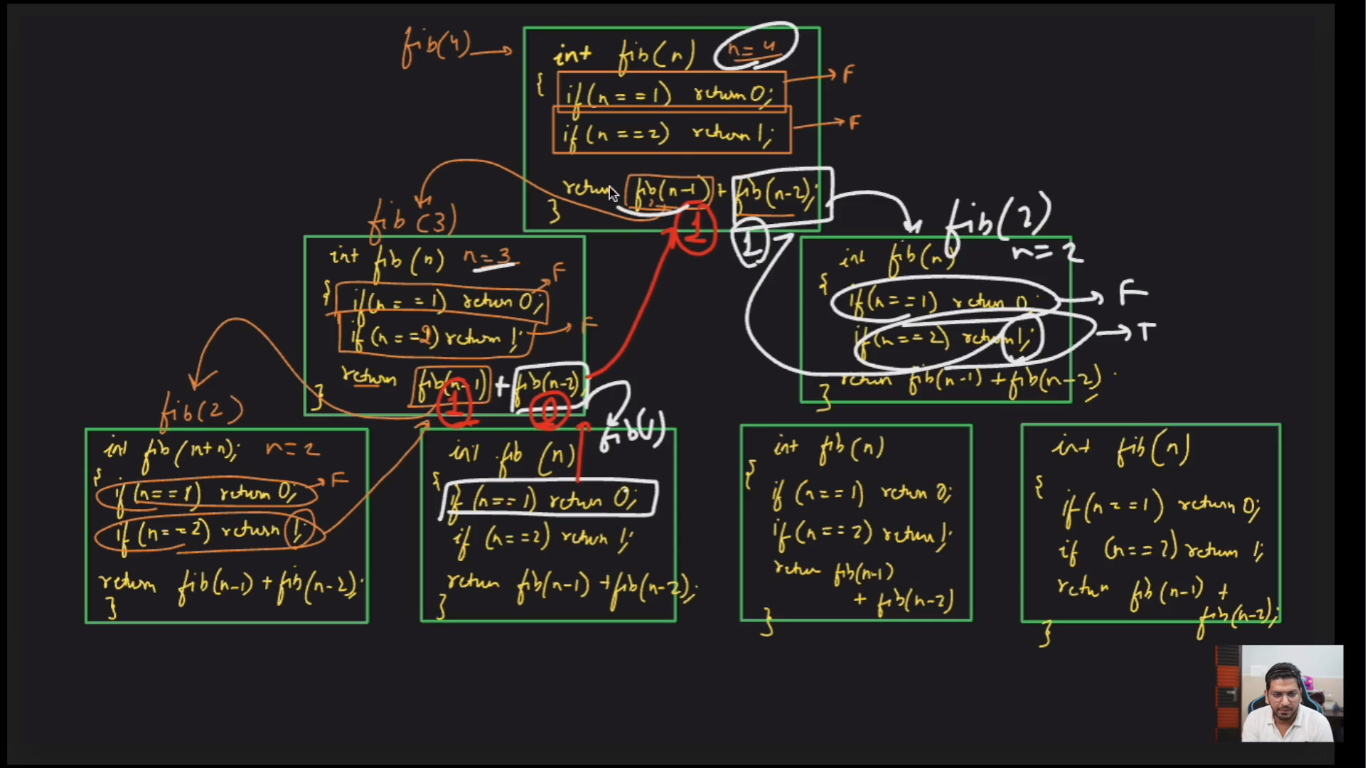 fib(4)
int fib(n) n=4
{
if(n==1) return 0; F
if(n==2) return 1; F
return fib(n-1) + fib(n-2);
}
1
1
fib(3)
int fib(n) n=3
{
if(n==1) return 0; F
if(n==2) return 1; F
return fib(n-1) + fib(n-2)
}
1
0
fib(2)
n=2
int fib(n)
{
if(n==1) return 0; F
if(n==2) return 1; T
return fib(n-1) + fib(n-2);
}
fib(2)
int fib(n+n); n=2
{
if(n==1) return 0; F
if(n==2) return 1;
return fib(n-1) + fib(n-2);
}
fib(1)
int fib(n)
{
if(n==1) return 0;
if(n==2) return 1;
return fib(n-1) + fib(n-2);
}
int fib(n)
{
if(n==1) return 0;
if(n==2) return 1;
return fib(n-1)
+ fib(n-2)
}
int fib(n)
{
if(n==1) return 0;
if (n==2) return 1;
return fib(n-1) +
fib(n-2);
}